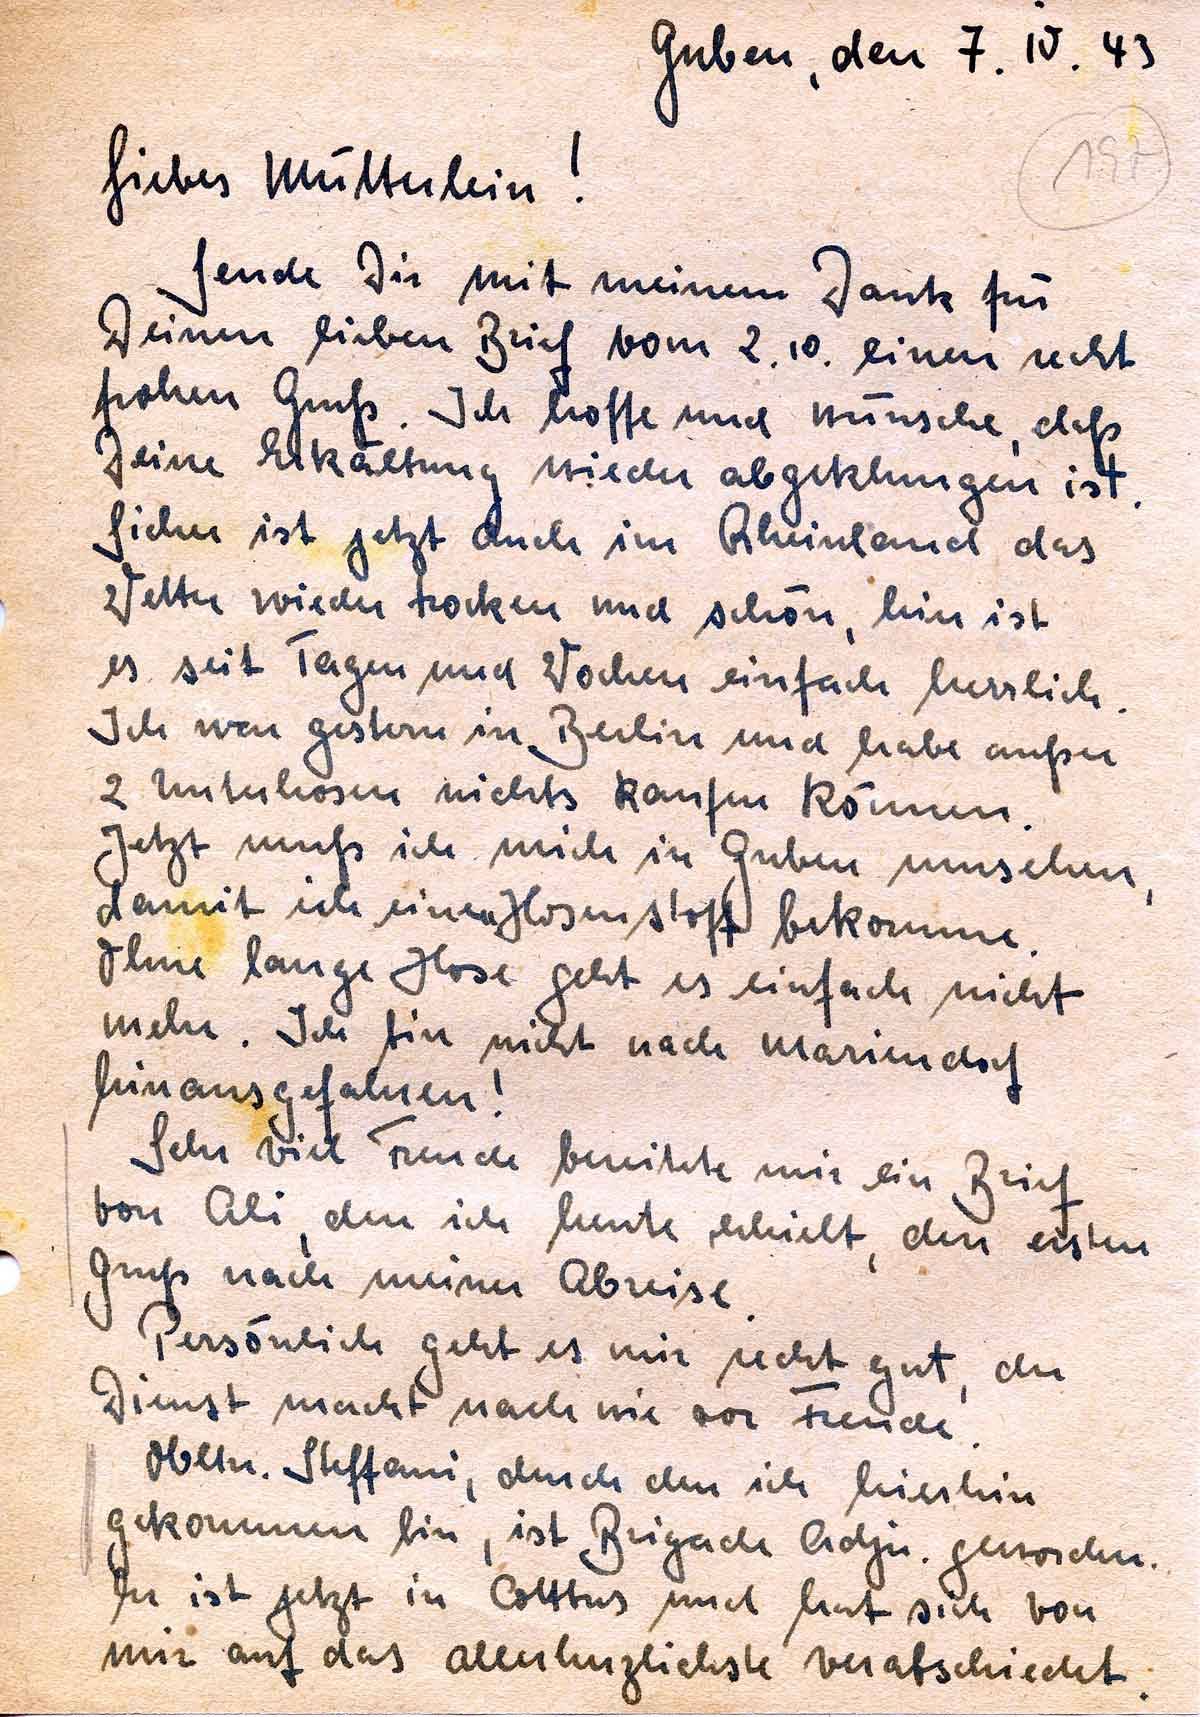 Guben, den 7. IV. 43
197
Liebes Mütterlein!
Sende Dir mit meinem Dank für
Deinen lieben Brief vom 2.10. einen recht
frohen Gruß. Ich hoffe und wünsche, daß
Deine Erkältung wieder abgeklungen ist.
Sicher ist jetzt auch im Rheinland das
Wetter wieder trocken und schön, hier ist
es seit Tagen und Wochen einfach herrlich.
Ich war gestern in Berlin und habe außer
2 Unterhosen nichts kaufen können.
Jetzt muß ich mich in Guben umsehen,
damit ich einen Hosenstoff bekomme.
Ohne lange Hose geht es einfach nicht
mehr. Ich bin nicht nach Mariendorf
hinausgefahren!
Sehr viel Freude bereitete mir ein Brief
von Ali, den ich heute erhielt, den ersten
Gruß nach meiner Abreise.
Persönlich geht es mir recht gut, der
Dienst macht nach wie vor Freude.
Obltn. Steffani, durch den ich hierhin
gekommen bin, ist Brigade Adju. geworden.
Er ist jetzt in Cottbus und hat sich von
mir auf das allerherzlichste verabschiedet.